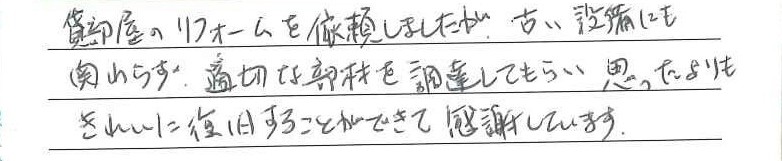 貸部屋のリフォームを依頼しましたが、古い設備にも
関わらず、適切な部材を調達してもらい思ったよりも
きれいに復旧することができて感謝しています。